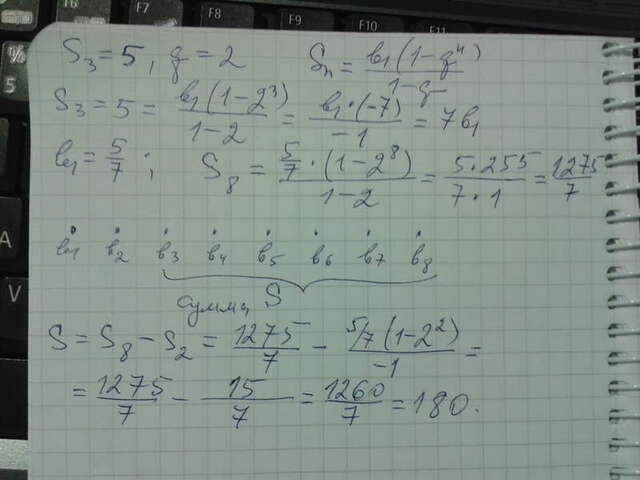 F6 F7 F8 F9 F10 F11
% 5
S₃ = 5, q = 2 Sₙ = b₁(1-qⁿ)/1-q
S₃ = 5 = b₁(1-2³)/1-2 = b₁·(-7)/-1 = 7b₁
b₁ = 5/7; S₈ = 5/7·(1-2⁸)/1-2 = 5·255/7·1 = 1275/7
A
b₁ b₂ b₃ b₄ b₅ b₆ b₇ b₈
V
сумма S
S = S₈ - S₂ = 1275/7 - 5/7(1-2²)/-1 =
= 1275/7 - 15/7 = 1260/7 = 180.